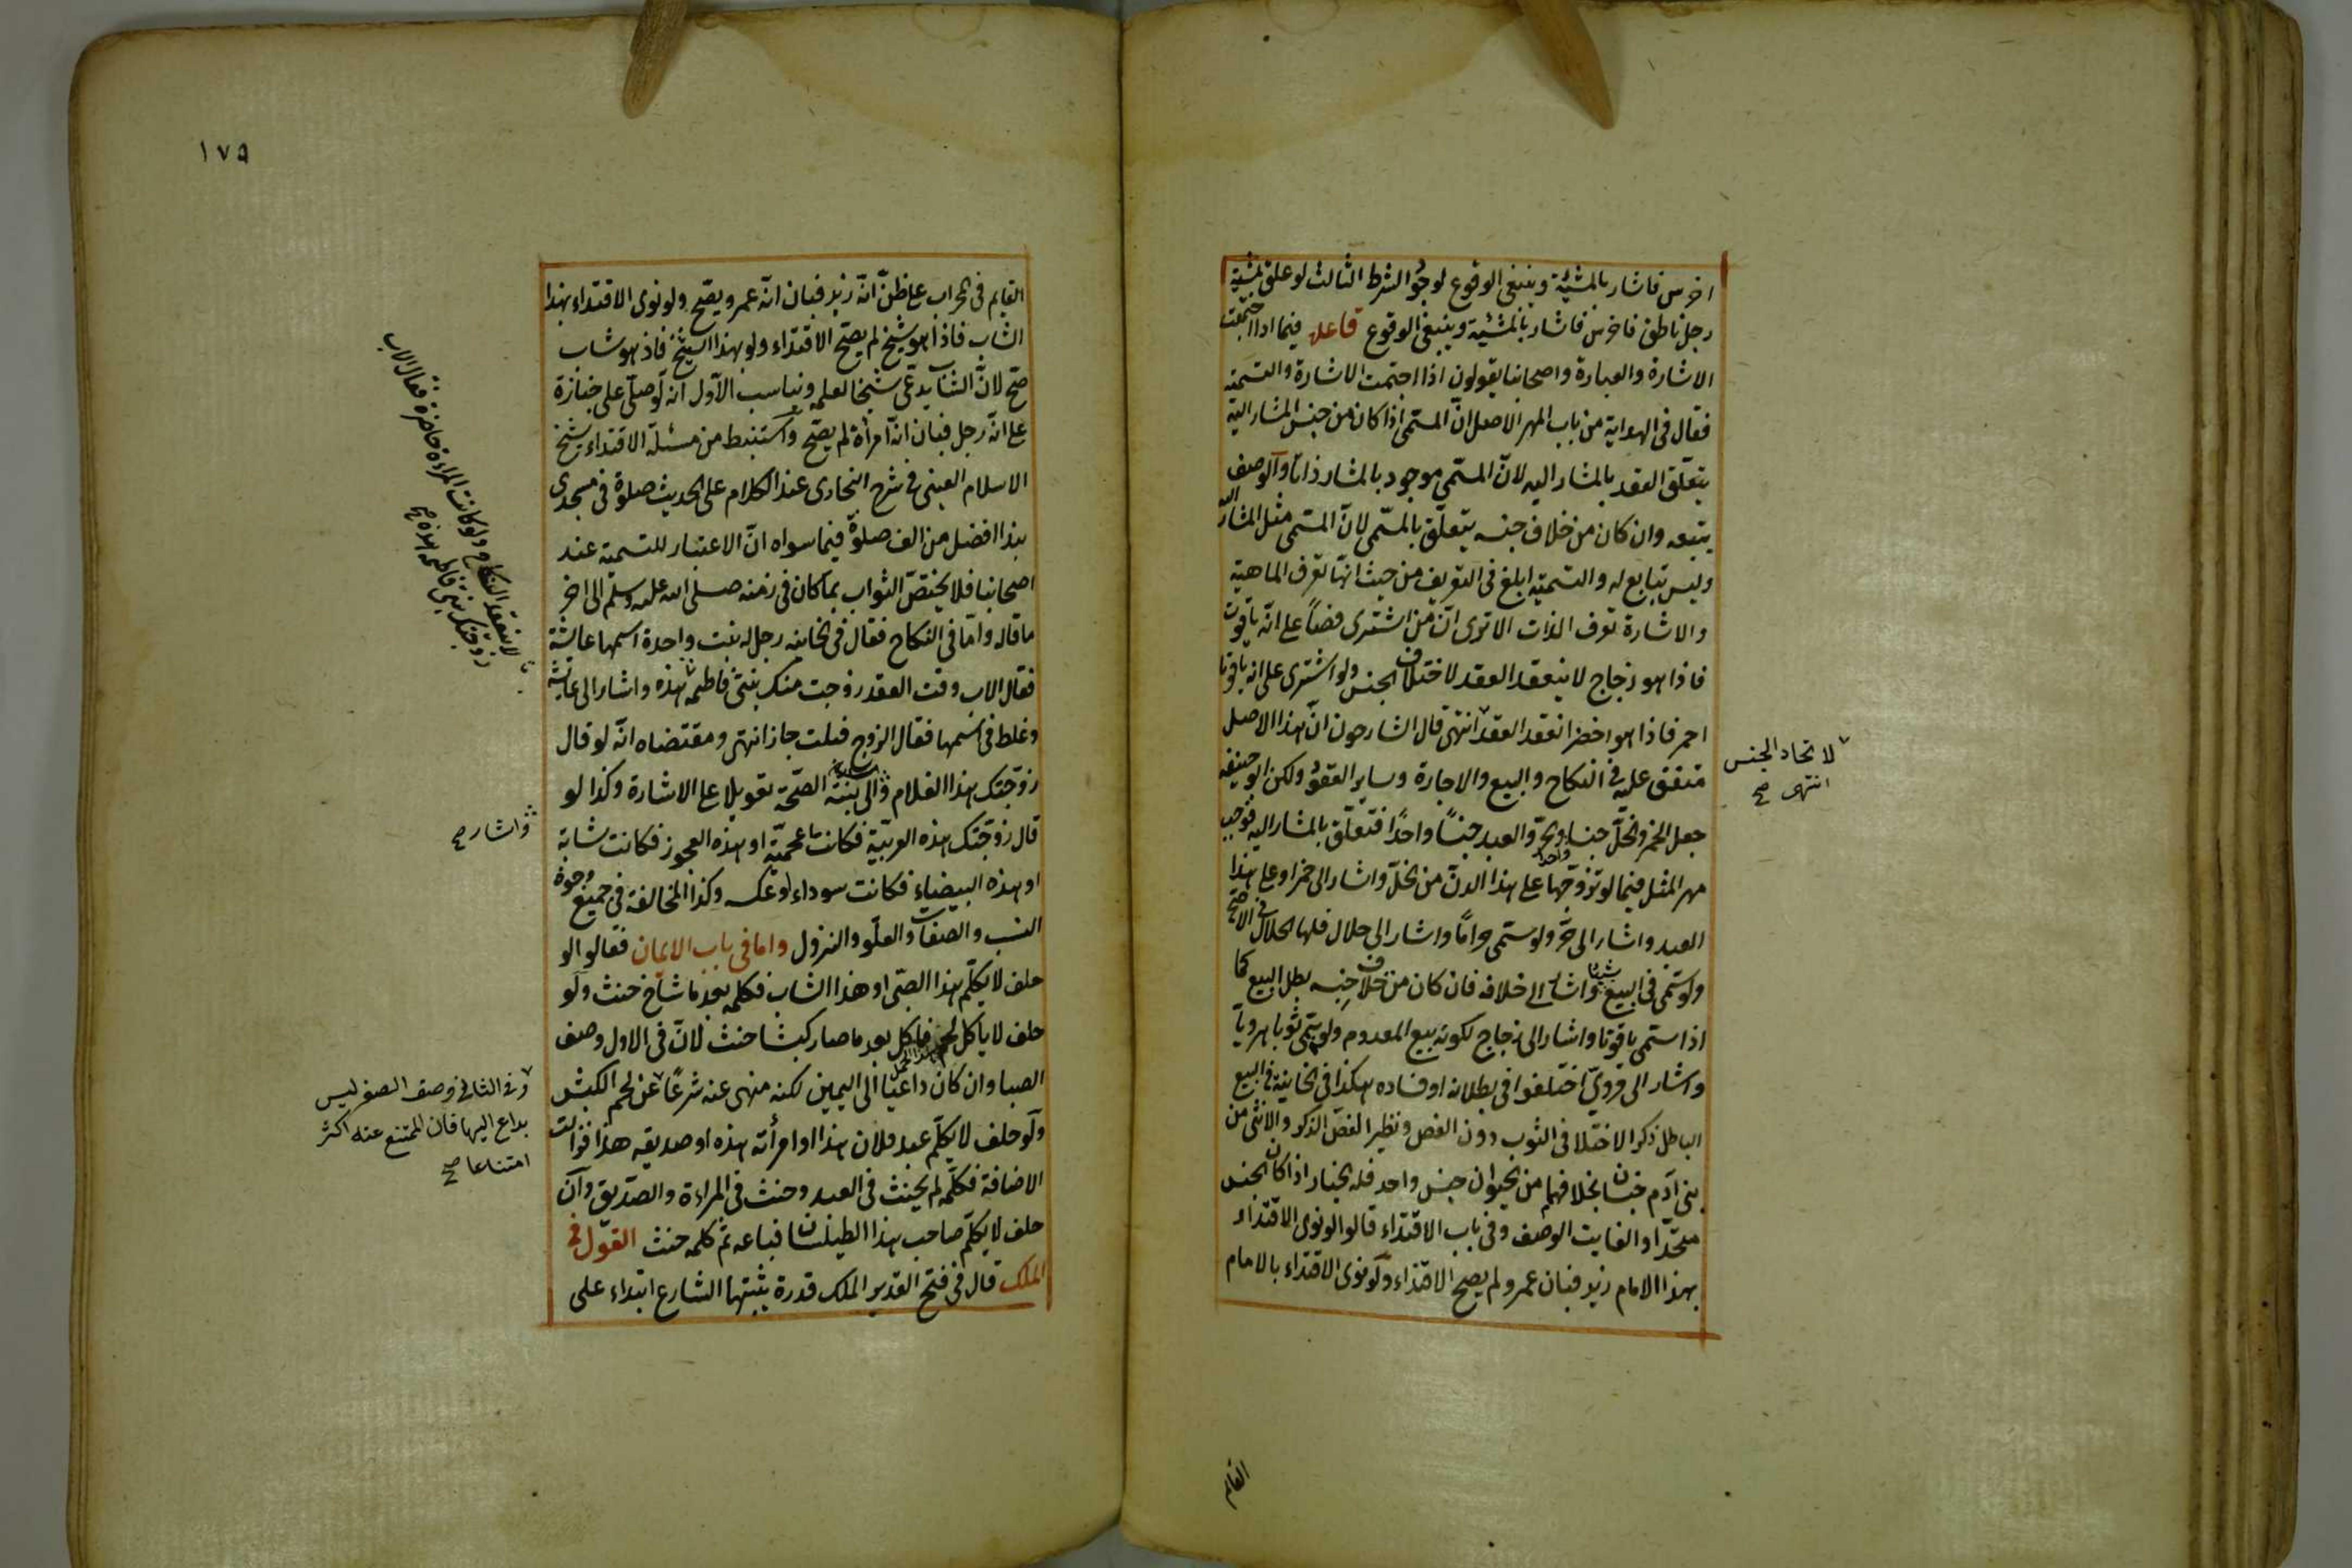 اخرس فاشار بالمشيّة وينبغى الوقوع لوجود الشرط الثالث لو علق بمشيّة
رجل ناطق فاخرس فاشار بالمشيّة وينبغى الوقوع قاعدة فيما اذا اجتمعت
الاشارة والعبارة واصحابنا يقولون اذا اجتمعت الاشارة والتسمية
فقال فى الهداية من باب المهر الاصل انّ المسمّى اذا كان من جنس المشار اليه
يتعلّق العقد بالمشار اليه لانّ المسمّى موجود بالمشار ذاتا والوصف
يتبعه وان كان من خلاف جنسه يتعلّق بالمسمّى لانّ المسمّى مثل المشار اليه
وليس بتابع له والتسمية ابلغ فى التعريف من حيث انّها تعرف الماهية
والاشارة تعرف الذات الا ترى انّ من اشترى فصّاً على انّه ياقوت
فاذا هو زجاج لا ينعقد العقد لاختلاف الجنس ولو اشترى على انه ياقوتا
احمر فاذا هو اخضر انعقد العقد انتهى قال الشارحون انّ هذا الاصل
متفق عليه فى النكاح والبيع والاجارة وساير العقود ولكن ابو حنيفه
جعل الخمر والخلّ جنسا والحرّ والعبد جنسًا واحدًا فتعلّق بالمشار اليه فوجب
مهر المثل فيما لو تزوّجها على هذا الدنّ من الخلّ واشار الى خمر او على هذا
العبد واشار الى حرّ ولو سمّى حرامًا واشار الى حلال فلها الحلال فى الاصح
ولو سمّى فى البيع شيئا واشار الى خلافه فان كان من خلاف جنسه بطل البيع كما
اذا سمى ياقوتا واشار الى زجاج لكونه بيع المعدوم ولو سمّى ثوبا هرويّا
واشار الى مروىّ اختلفوا فى بطلانه او فساده هكذا فى الخانية فى البيع
الباطل ذكر الاختلاف فى الثوب دون الفص ونظير الفصّ الذكر والانثى من
بنى آدم جنسان بخلافهما من الحيوان جنس واحد فله الخيار اذا كان الجنس
متحدّا والفايت الوصف وفى باب الاقتداء قالوا لو نوى الاقتداء
بهذا الامام زيد فبان عمرو لم يصح الاقتداء ولو نوى الاقتداء بالامام
لاتحاد الجنس
انتهى صح
القايم
١٧٥
القايم فى المحراب على ظنّ انّه زيد فبان انّه عمرو يصحّ ولو نوى الاقتداء بهذا
الشاب فاذا هو شيخ لم يصحّ الاقتداء ولو بهذا الشيخ فاذا هو شاب
صحّ لانّ الشاب يدعى شيخا لعلمه ويناسب الاول انه لو صلّى على جنازة
على انّه رجل فبان انّه امرأة لم يصحّ واستنبط من مسئلة الاقتداء شيخ
الاسلام العينى فى شرح البخارى عند الكلام على الحديث صلوة فى مسجدى
هذا افضل من الف صلوة فيما سواه انّ الاعتبار للتسمية عند
اصحابنا فلا يختصّ الثواب بما كان فى زمنه صلى الله عليه وسلم الى اخر
ما قاله وامّا فى النكاح فقال فى الخانيه رجل له بنت واحدة اسمها عايشة
فقال الاب وقت العقد زوجت منك بنتى فاطمه هذه واشار الى عايشة
وغلط فى اسمها فقال الزوج قبلت جاز انتهى ومقتضاه انّه لو قال
زوّجتك هذا الغلام الى بنته الصّحّة تعويلا على الاشارة وكذا لو
قال زوّجتك هذه العربيّة فكانت عجميّة او هذه العجوز فكانت شابة
او هذه البيضاء فكانت سوداء او عكسه وكذا المخالفة فى جميع وجوه
النسب والصفات والعلّو والنزول واما فى باب الايمان فقالوا لو
حلف لا يكلّم هذا الصبىّ او هذا الشاب فكلمه بعد ما شاخ حنث ولو
حلف لا ياكل لحم هذا الحمل فاكل بعد ما صار كبشا حنث لانّ فى الاول وصف
الصبا وان كان داعيّا الى اليمين لكنه منهى عنه شرعًا عن لحم الكبش
ولو حلف لا يكلّم عبد فلان هذا او امرأته هذه او صديقه هذا فزالت
الاضافة فكلّمه لم يحنث فى العبد وحنث فى المراءة والصدّيق وان
حلف لا يكلّم صاحب هذا الطيلسان فباعه ثم كلمه حنث القول فى
الملك قال فى فتح القدير الملك قدرة يثبتها الشارع ابتداء على
لا ينعقد النكاح ولو كانت المراءة حاضرة فقال الاب
زوّجتك بنتى فاطمه هذه صح
واشار صح
وفى الثانى وصف الصغر ليس
بداع اليها فان الممتنع عنه اكثر
امتناعا صح